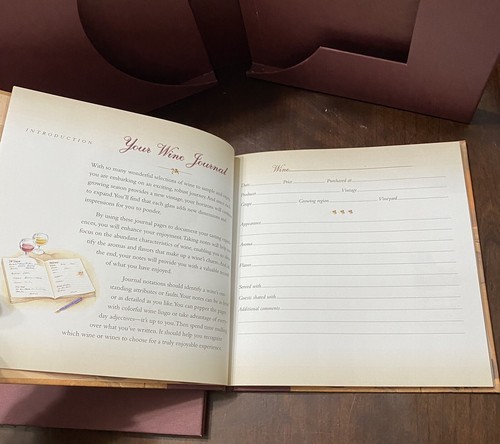 INTRODUCTION
Your Wine Journal
With so many wonderful selections of wine to sample and enjoy,
you are embarking on an exciting, robust journey. And since each
growing season provides a new vintage, your business will continue
to expand. You'll find that each glass adds new discoveries and
impressions for you to ponder.
By using these journal pages to document your tasting experi-
ences, you will enhance your enjoyment. Taking notes will help you
focus on the abundant characteristics of wine, enabling you to iden-
tify the aromas and flavors that make up a wine's charm. And in
the end, your notes will provide you with a valuable record
of what you have enjoyed.
Journal notations should identify a wine's out-
standing attributes or faults. Your notes can be as brief
or as detailed as you like. You can pepper the pages
with colorful wine lingo or take advantage of every-
day adjectives—it's up to you. Then spend some time
over what you've written. It should help you recognize
which wine or wines to choose for a truly enjoyable experience.
Wine
Date Price Purchased at
Producer Vintage
Grape Growing region Vineyard
Appearance
Aroma
Flavor
Served with
Guests shared with
Additional comments